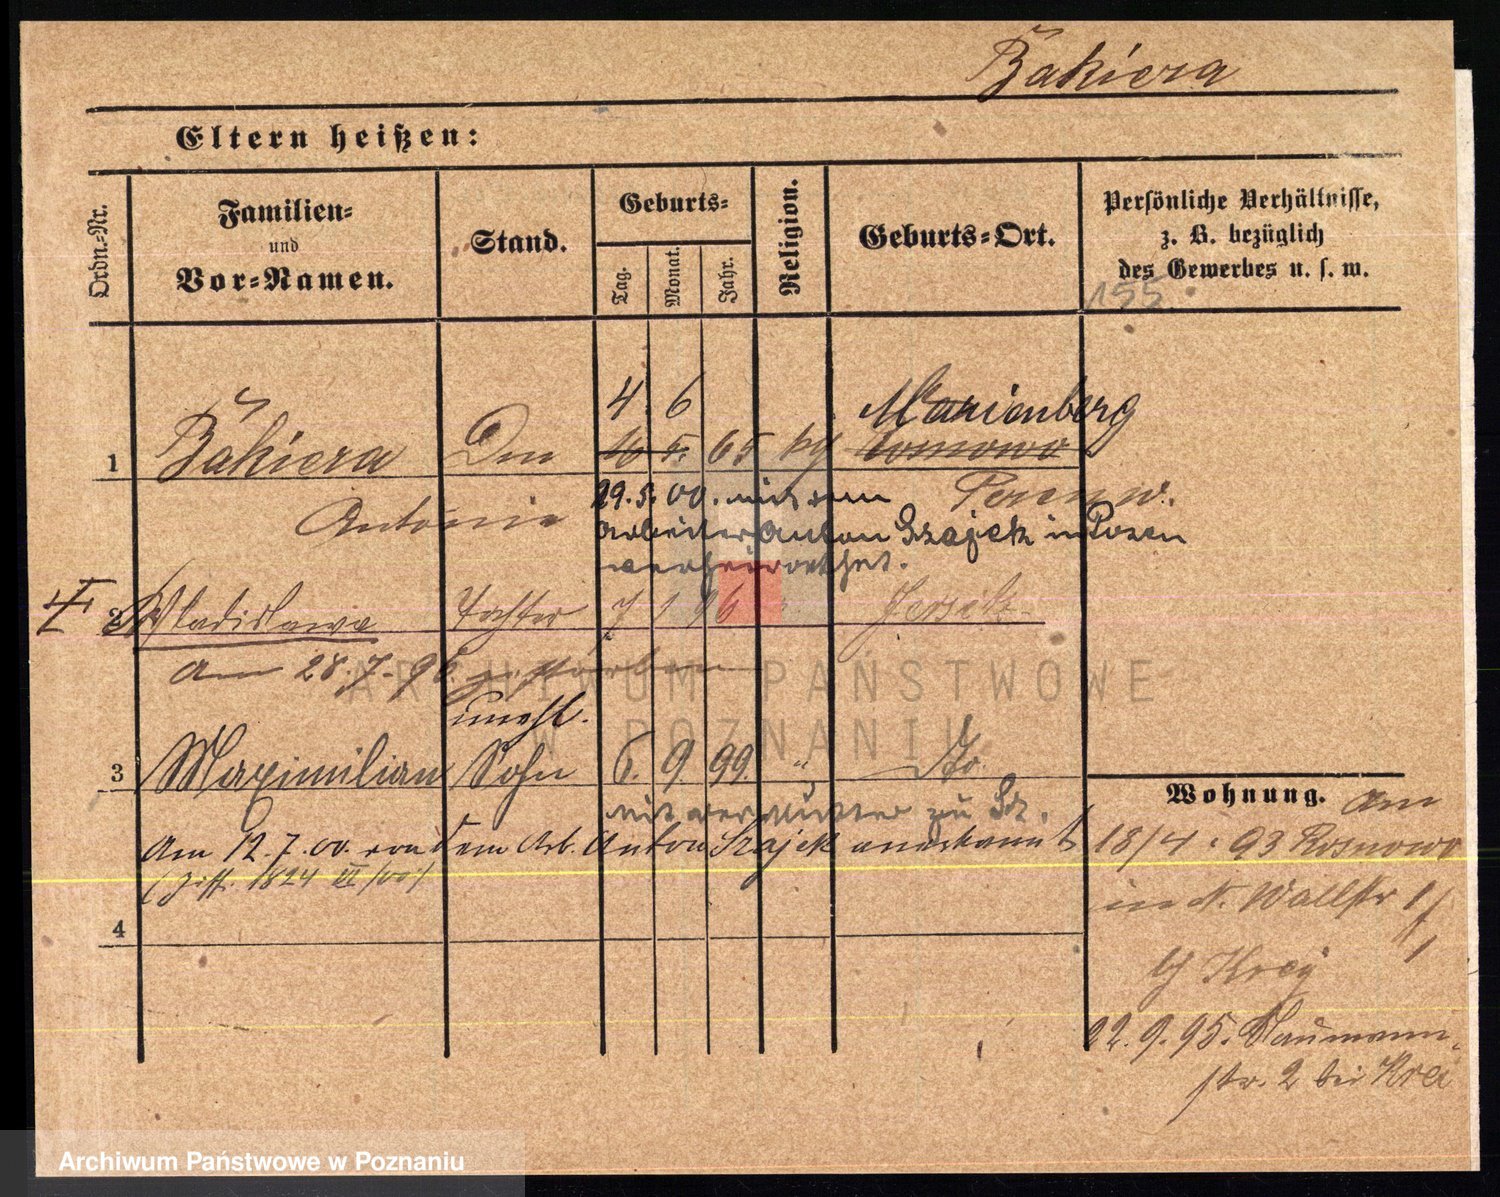 Bakiera
Eltern heißen:
Ordn.-Nr.
Familien-
und
Vor-Namen.
Stand.
Geburts-
Tag.
Monat.
Jahr.
Religion.
Geburts-Ort.
Persönliche Verhältnisse,
z. B. bezüglich
des Gewerbes u. s. w.
155.
4. 6
Marienberg
1 Bakiera 65
Antonie
29.5.00. mit dem
Arbeiter Anton Szajek in Posen
verheirathet.
2 Wladislawa Tochter 7 1 96 Jersitz
am 28.7.96 gestorben
unehl.
3 Maximilian Sohn 6. 9 99. " Do.
mit der Mutter zu Sz.
Am 12.7.00. von dem Arb. Anton Szajek anerkannt
1824 III/00
4
Wohnung. Am
18/4. 93 Rosnowo
in Wallstr 1/1
b/ Krey
22.9.95. Naumann-
str. 2 bei Krei
ARCHIWUM PAŃSTWOWE
W POZNANIU
Archiwum Państwowe w Poznaniu